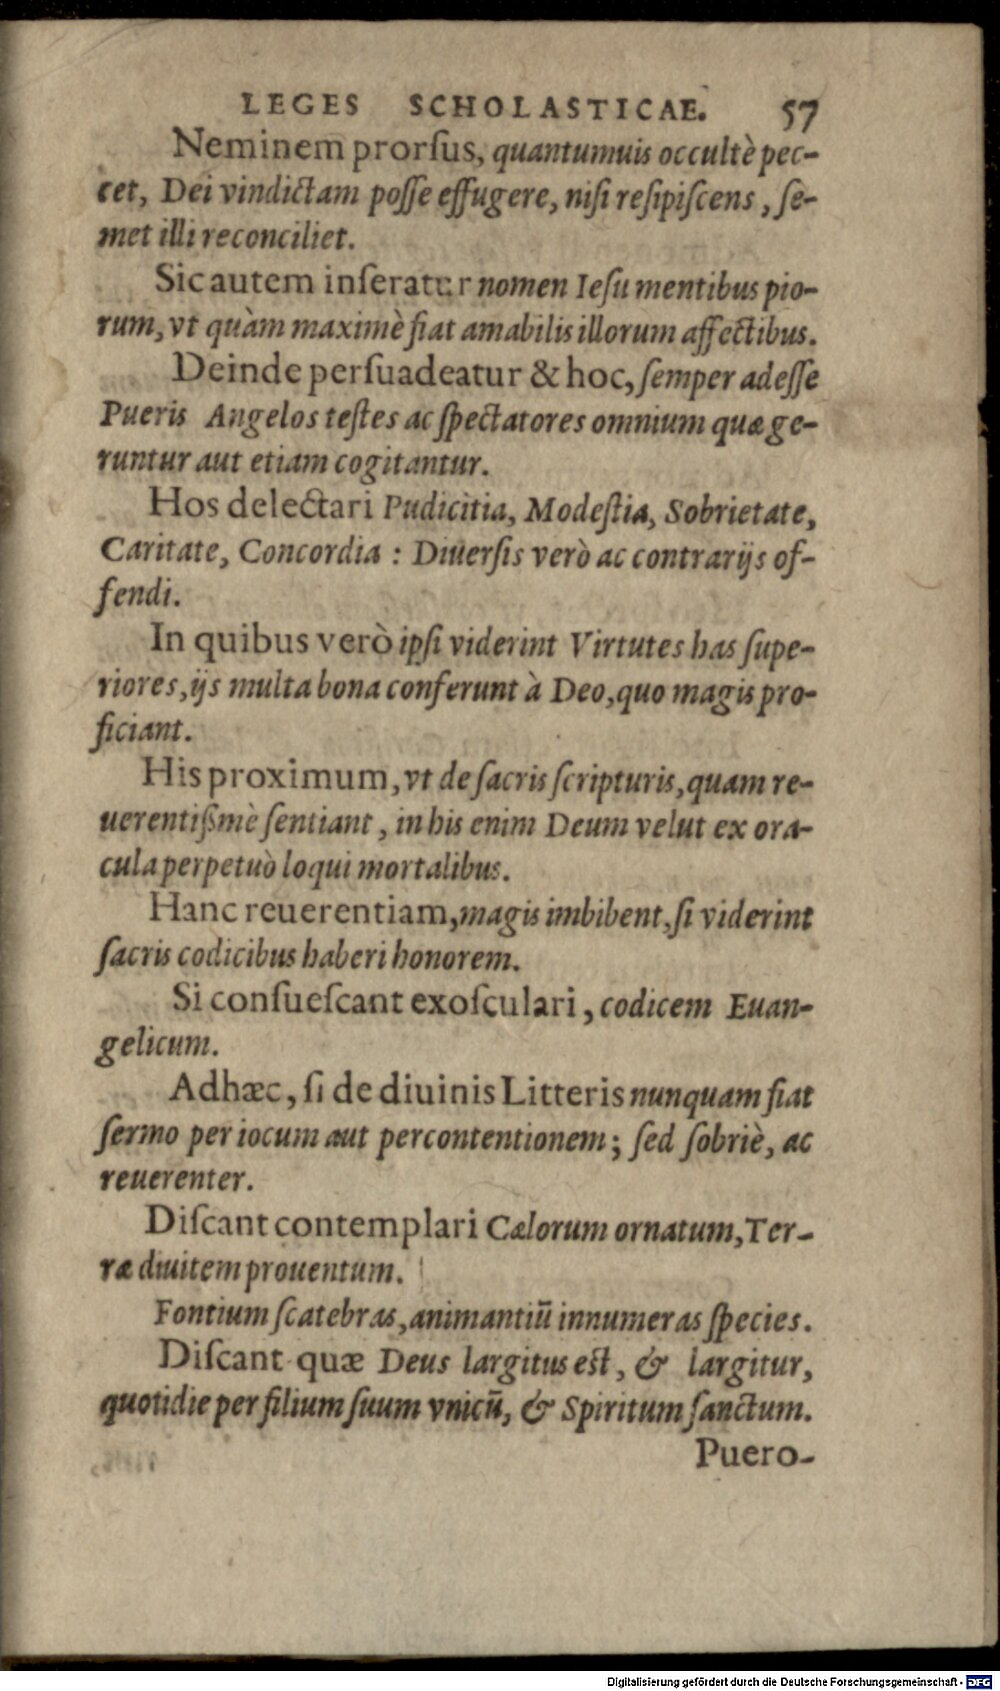 LEGES SCHOLASTICAE. 57
Neminem prorſus, quantumuis occultè pec-
cet, Dei vindictam poſſe effugere, niſi reſipiſcens, ſe-
met illi reconciliet.
Sic autem inſeratur nomen Ieſu mentibus pio-
rum, vt quàm maximè fiat amabilis illorum affectibus.
Deinde perſuadeatur & hoc, ſemper adeſſe
Pueris Angelos teſtes ac ſpectatores omnium quæ ge-
runtur aut etiam cogitantur.
Hos delectari Pudicitia, Modeſtia, Sobrietate,
Caritate, Concordia : Diuerſis verò ac contrarijs of-
fendi.
In quibus verò ipſi viderint Virtutes has ſupe-
riores, ijs multa bona conferunt à Deo, quo magis pro-
ficiant.
His proximum, vt de ſacris ſcripturis, quam re-
uerentißmè ſentiant, in his enim Deum velut ex ora-
cula perpetuò loqui mortalibus.
Hanc reuerentiam, magis imbibent, ſi viderint
ſacris codicibus haberi honorem.
Si conſueſcant exoſculari, codicem Euan-
gelicum.
Adhæc, ſi de diuinis Litteris nunquam fiat
ſermo per iocum aut percontentionem; ſed ſobriè, ac
reuerenter.
Diſcant contemplari Cælorum ornatum, Ter-
ræ diuitem prouentum.
Fontium ſcatebras, animantiū innumeras ſpecies.
Diſcant quæ Deus largitus est, & largitur,
quotidie per filium ſuum vnicū, & Spiritum ſanctum.
Puero-
Digitalisierung gefördert durch die Deutsche Forschungsgemeinschaft - DFG